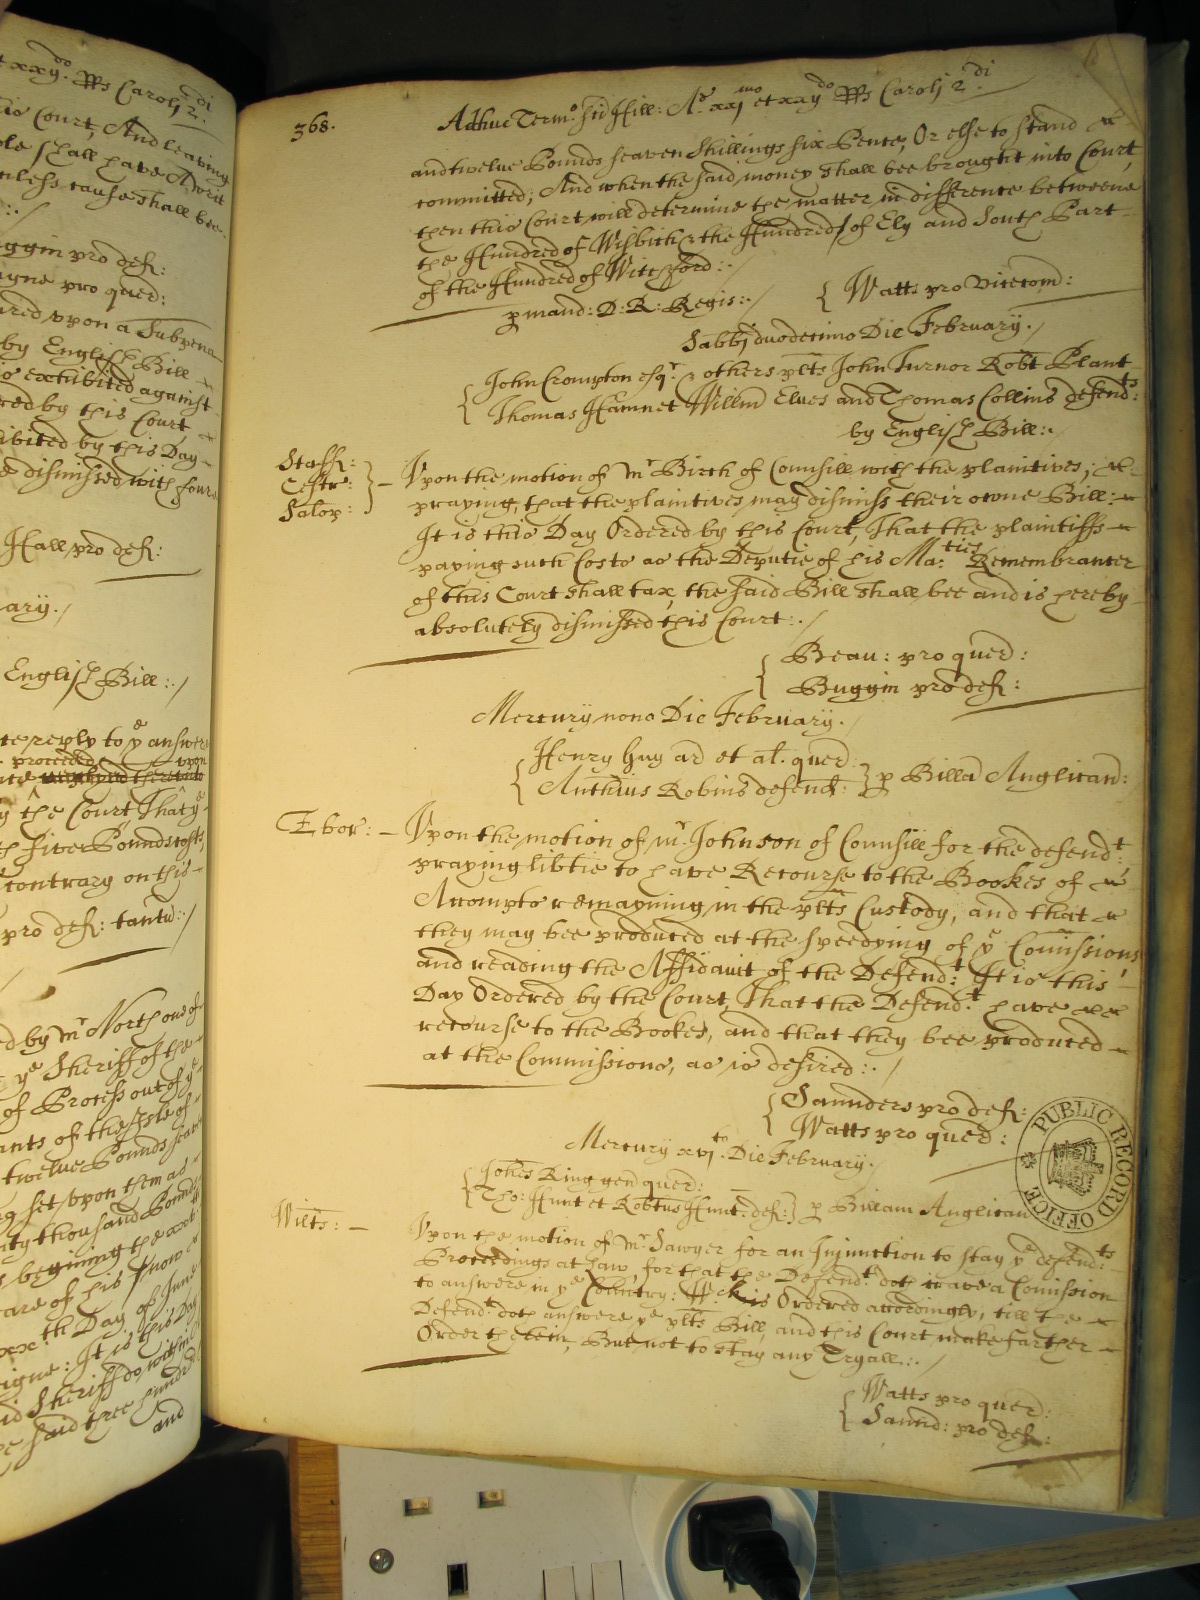 t xxij.do RRs Caroli 2.di
Court, And leaving
shall have A writt
unless cause shall bee
ggin pro def:
pro quer:
upon a Subpena
by English Bill
exhibited against
red by this Court
ibited by this Day
dismissed with foure
Hall pro def:
ary./
English Bill:./
reply to ye answere
proceeded upon
the Court That ye
five Pounds costs
contrary on this
pro def: tantu:./
d by mr North one of
ye Sheriff of the
of Process out of ye
ants of the Isle of
twelve Pounds seaven
set upon them as
ty thousand Pounds
begining the next
are of his
xx.th Day of June
It is this Day
Sheriff do within
said three hundred
and
368.
Adhuc Termo: Sti Hill: Ao xxjmo et xxijdo RRs Caroli 2.di
and twelve Pounds seaven Shillings six Pence, Or else to stand
committed; And when the said money shall bee brought into Court,
then this Court will determine the matter in difference betweene
the Hundred of Wisbich & the Hundreds of Ely and South Part
of the Hundred of Witchford:./
p mand: D: R: Regis:./
Watts pro vicecom:
Sabbi duodecimo Die February./
John Crompton esqr. & others plts John Turnor Robt Plant
Thomas Hamnet Willm Elves and Thomas Collins defendts:
by English Bill:.
Staff:
Cestr:
Salop:
Upon the motion of mr Birch of Counsill with the plaintives;
praying, that the plaintives may dismiss their owne Bill:
It is this Day Ordered by this Court, That the plaintiffs
paying such Costs as the Deputie of his Ma:ties Remembrancer
of this Court shall tax, the said Bill shall bee and is hereby
absolutely dismissed this Court:./
Beau: pro quer:
Buggin pro def:
Mercury nono Die February./
Henry ar et al. quer
Robins defend: p Billa Anglican:
Ebor: Upon the motion of mr. Johnson of Counsill for the defendt:
praying libtie to have Recourse to the Bookes of
Accompts remayning in the plts Custody, and that
they may bee produced at the speedying of ye Comissions
and reading the Affidavit of the Defend:t It is this
Day Ordered by the Court, That the Defend:t have
recourse to the Bookes, and that they bee produced
at the Commissions, as is desired:./
Saunders pro def:
Watts pro quer:
Mercury xvjto Die February./
Johes King gen quer:
Tho: Hunt et Robtus Hunt: def: p Billam Anglican
Wilts: Upon the motion of Mr. Sawyer for an Injunction to stay ye defend:ts
Proceedings at Law, for that the Defend:t doth crave a Comission
to answere in ye Country: W:ch is Ordered accordingly, till the
Defend:t doth answere ye plts Bill, and this Court make farther
Order therein, But not to stay any Tryall:./
Watts pro quer:
Saund: pro def:
PUBLIC RECORD OFFICE